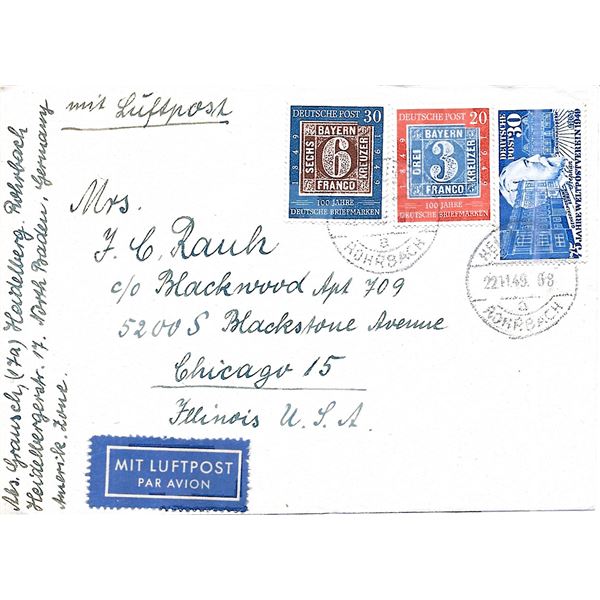 Abs. Grausch, (17a) Heidelberg-Rohrbach
Heidelbergerstr. 17. North Baden, Germany
Amerik. Zone.
mit Luftpost
DEUTSCHE POST 30
BAYERN
SECHS
6
KREUZER
FRANCO
1849
1949
100 JAHRE
DEUTSCHE BRIEFMARKEN
DEUTSCHE POST 20
BAYERN
DREI
3
KREUZER
FRANCO
1849
1949
100 JAHRE
DEUTSCHE BRIEFMARKEN
DEUTSCHE
POST 30
75 JAHRE WELTPOSTVEREIN 1949
a
ROHRBACH
22.11.49. 08
a
ROHRBACH
Mrs.
F. C. Rauh
c/o Blackwood Apt 709
5200 S Blackstone Avenue
Chicago 15
Illinois U. S. A.
MIT LUFTPOST
PAR AVION